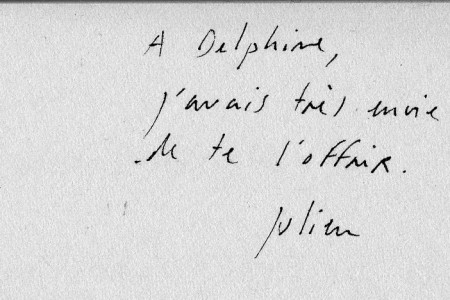 A Delphine,
j'avais très envie
de te l'offrir.
Julien